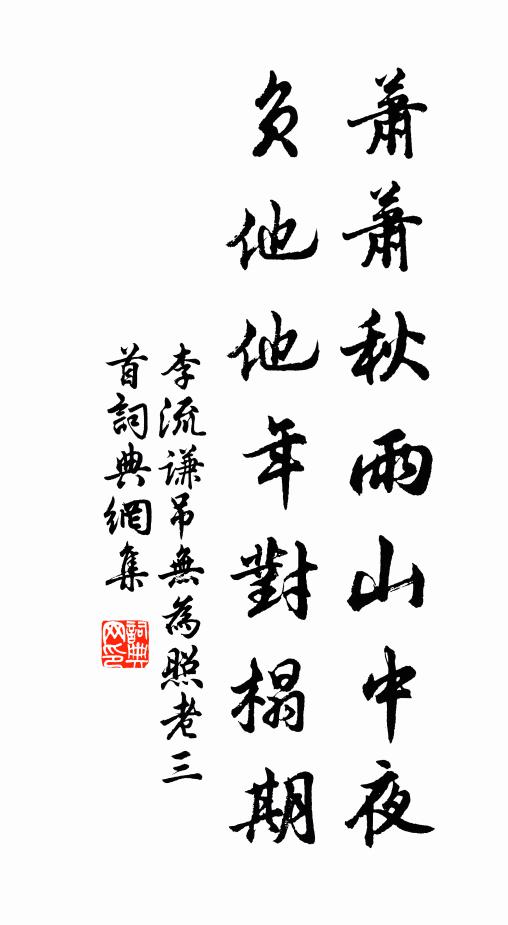 蕭蕭秋雨山中夜
負他他年對榻期
李流謙吊無為照老三
首詞典網集
詞典網印